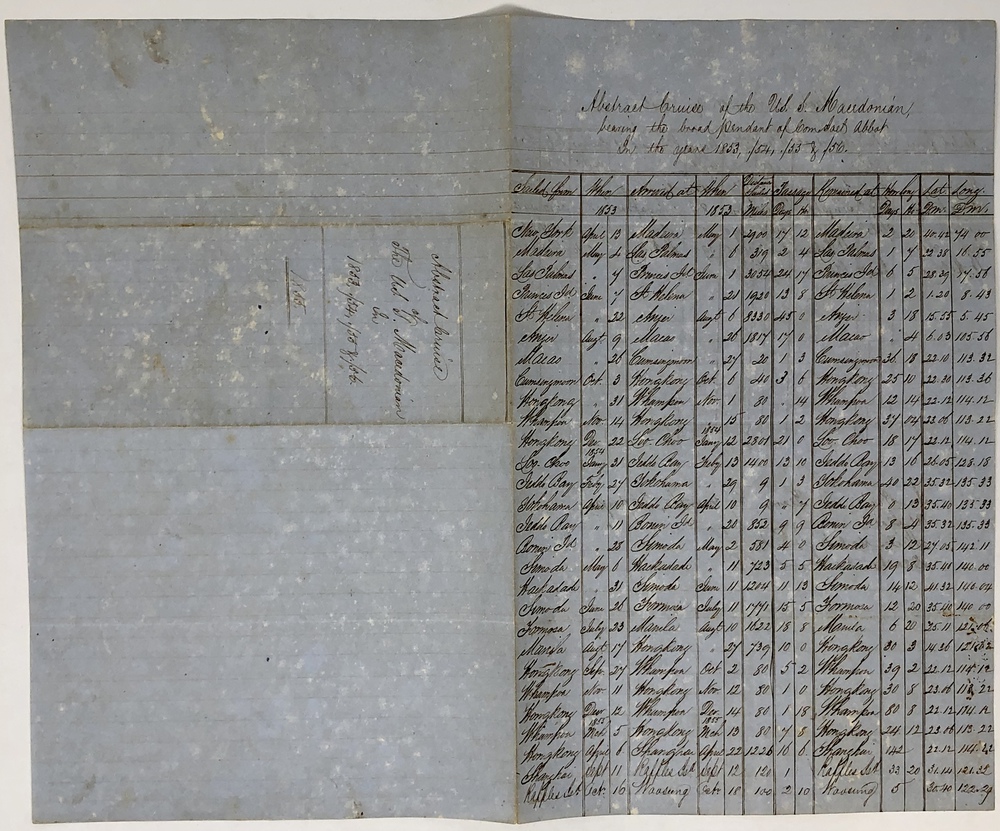 Abstract Cruise
The U.S. S. Macedonian
In
1853, /54, /55 & /56
Abstract Cruise of the U.S. S. Macedonian,
bearing the broad pendant of Com. Abbot
In the years 1853, /54, /55 & /56.
Sailed from When Arrived at When Distance Passage Remained at Harbor Lat. Long.
1853 1853 Miles Days H. Days H. Dm. Dm.
New York April 13 Madeira May 1 2900 17 12 Madeira 2 20 40.42 74 00
Madeira May 4 Las Palmas " 6 319 2 4 Las Palmas 1 7 16.55
Las Palmas " 7 Princes Id Jun 1 3054 24 17 Princes Id 6 5 28.29 17.56
Princes Id June 7 St Helena " 21 1920 13 8 St Helena 1 2 1.20 8.43
St Helena " 22 Anjer Augt 6 8330 45 0 Anjer 3 18 15.55 5.45
Anjer Augt 9 Macao " 26 1817 17 0 Macao " 4 6.03 105.56
Macao " 26 Cumsingmoon " 27 20 1 3 Cumsingmoon 36 18 22.10 113.32
Cumsingmoon Oct. 3 Hongkong Oct. 6 40 3 6 Hongkong 25 10 22.30 113.36
Hongkong " 31 Whampoa Nov. 1 80 . 14 Whampoa 12 14 22.12 114.12
Whampoa Nov. 14 Hongkong " 15 80 1 2 Hongkong 37 04 23.06 113.22
Hongkong Dec. 22 Loo Choo 1854 Jany 12 2301 21 0 Loo Choo 18 17 22.12 114.12
Loo Choo 1854 Jany 31 Jeddo Bay Feby 13 1400 13 10 Jeddo Bay 13 16 26.05 128.18
Jeddo Bay Feby 27 Yokohama " 29 9 1 3 Yokohama 40 22 35.32 135.33
Yokohama April 10 Jeddo Bay April 10 9 " 7 Jeddo Bay 0 13 35.40 135.33
Jeddo Bay " 11 Bonin Id " 20 852 9 9 Bonin Id 8 4 35.32 135.33
Bonin Id " 28 Simoda May 2 581 4 0 Simoda 3 12 27.05 142 11
Simoda May 6 Hackadadi " 11 723 5 5 Hackadadi 19 8 35.40 140.00
Hackadadi " 31 Simoda June 11 1204 11 13 Simoda 14 12 41.32 140.04
Simoda June 26 Formosa July 11 1771 15 5 Formosa 12 20 35.40 140 00
Formosa July 23 Manila Augt 10 1622 18 8 Manila 6 20 25.11
Manila Augt 17 Hongkong " 27 739 10 0 Hongkong 30 3 14.36
Hongkong Sept. 27 Whampoa Oct 2 80 5 2 Whampoa 39 2 22.12 114.12
Whampoa Nov 11 Hongkong Nov. 12 80 1 0 Hongkong 30 8 23.06 113.22
Hongkong Decr 12 Whampoa Dec 14 80 1 18 Whampoa 80 8 22.12 114.12
Whampoa 1855 Mch 5 Hongkong 1855 Mch 13 80 7 8 Hongkong 24 12 23.06 113.22
Hongkong April 6 Shanghai April 22 1226 16 6 Shanghai 142 22.12
Shanghai Sept 11 Raffles Isl. Sept 12 120 1 Raffles Isl. 33 20 31.14 121.32
Raffles Isl. Oct. 16 Woosung Oct. 18 100 2 10 Woosung 5 30.40 122.29